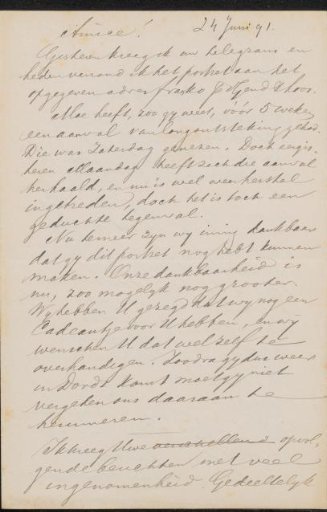 Amice! 24 Juni 91.
Gisteren kreeg ik uw telegram en
heden verzond ik het portret aan het
opgegeven adres franko
Mac heeft, zoo gy weet, vóór 5 weken
een aanval van longontsteking gehad.
Die was Zaterdag genezen. Doch eergis-
teren Maandag heeft zich die aanval
herhaald, en nu is wel weer herstel
ingetreden, doch het is toch een
geduchte tegenval.
Nu temeer zyn wy innig dankbaar
dat gy dit portret nog hebt kunnen
maken. Onze dankbaarheid is
nu, zoo mogelyk nog grooter.
Wy hebben U gezegd dat wy nog een
Cadeautje voor U hebben, en wy
wenschen U dat wel zelf te
overhandigen. Zoodra gy dus weer
in Dordt komt moet gy niet
vergeten ons daaraan te
herinneren.
Ik kreeg Uwe opvol-
gende berichten met veel
ingenomenheid. Gedeeltelyk